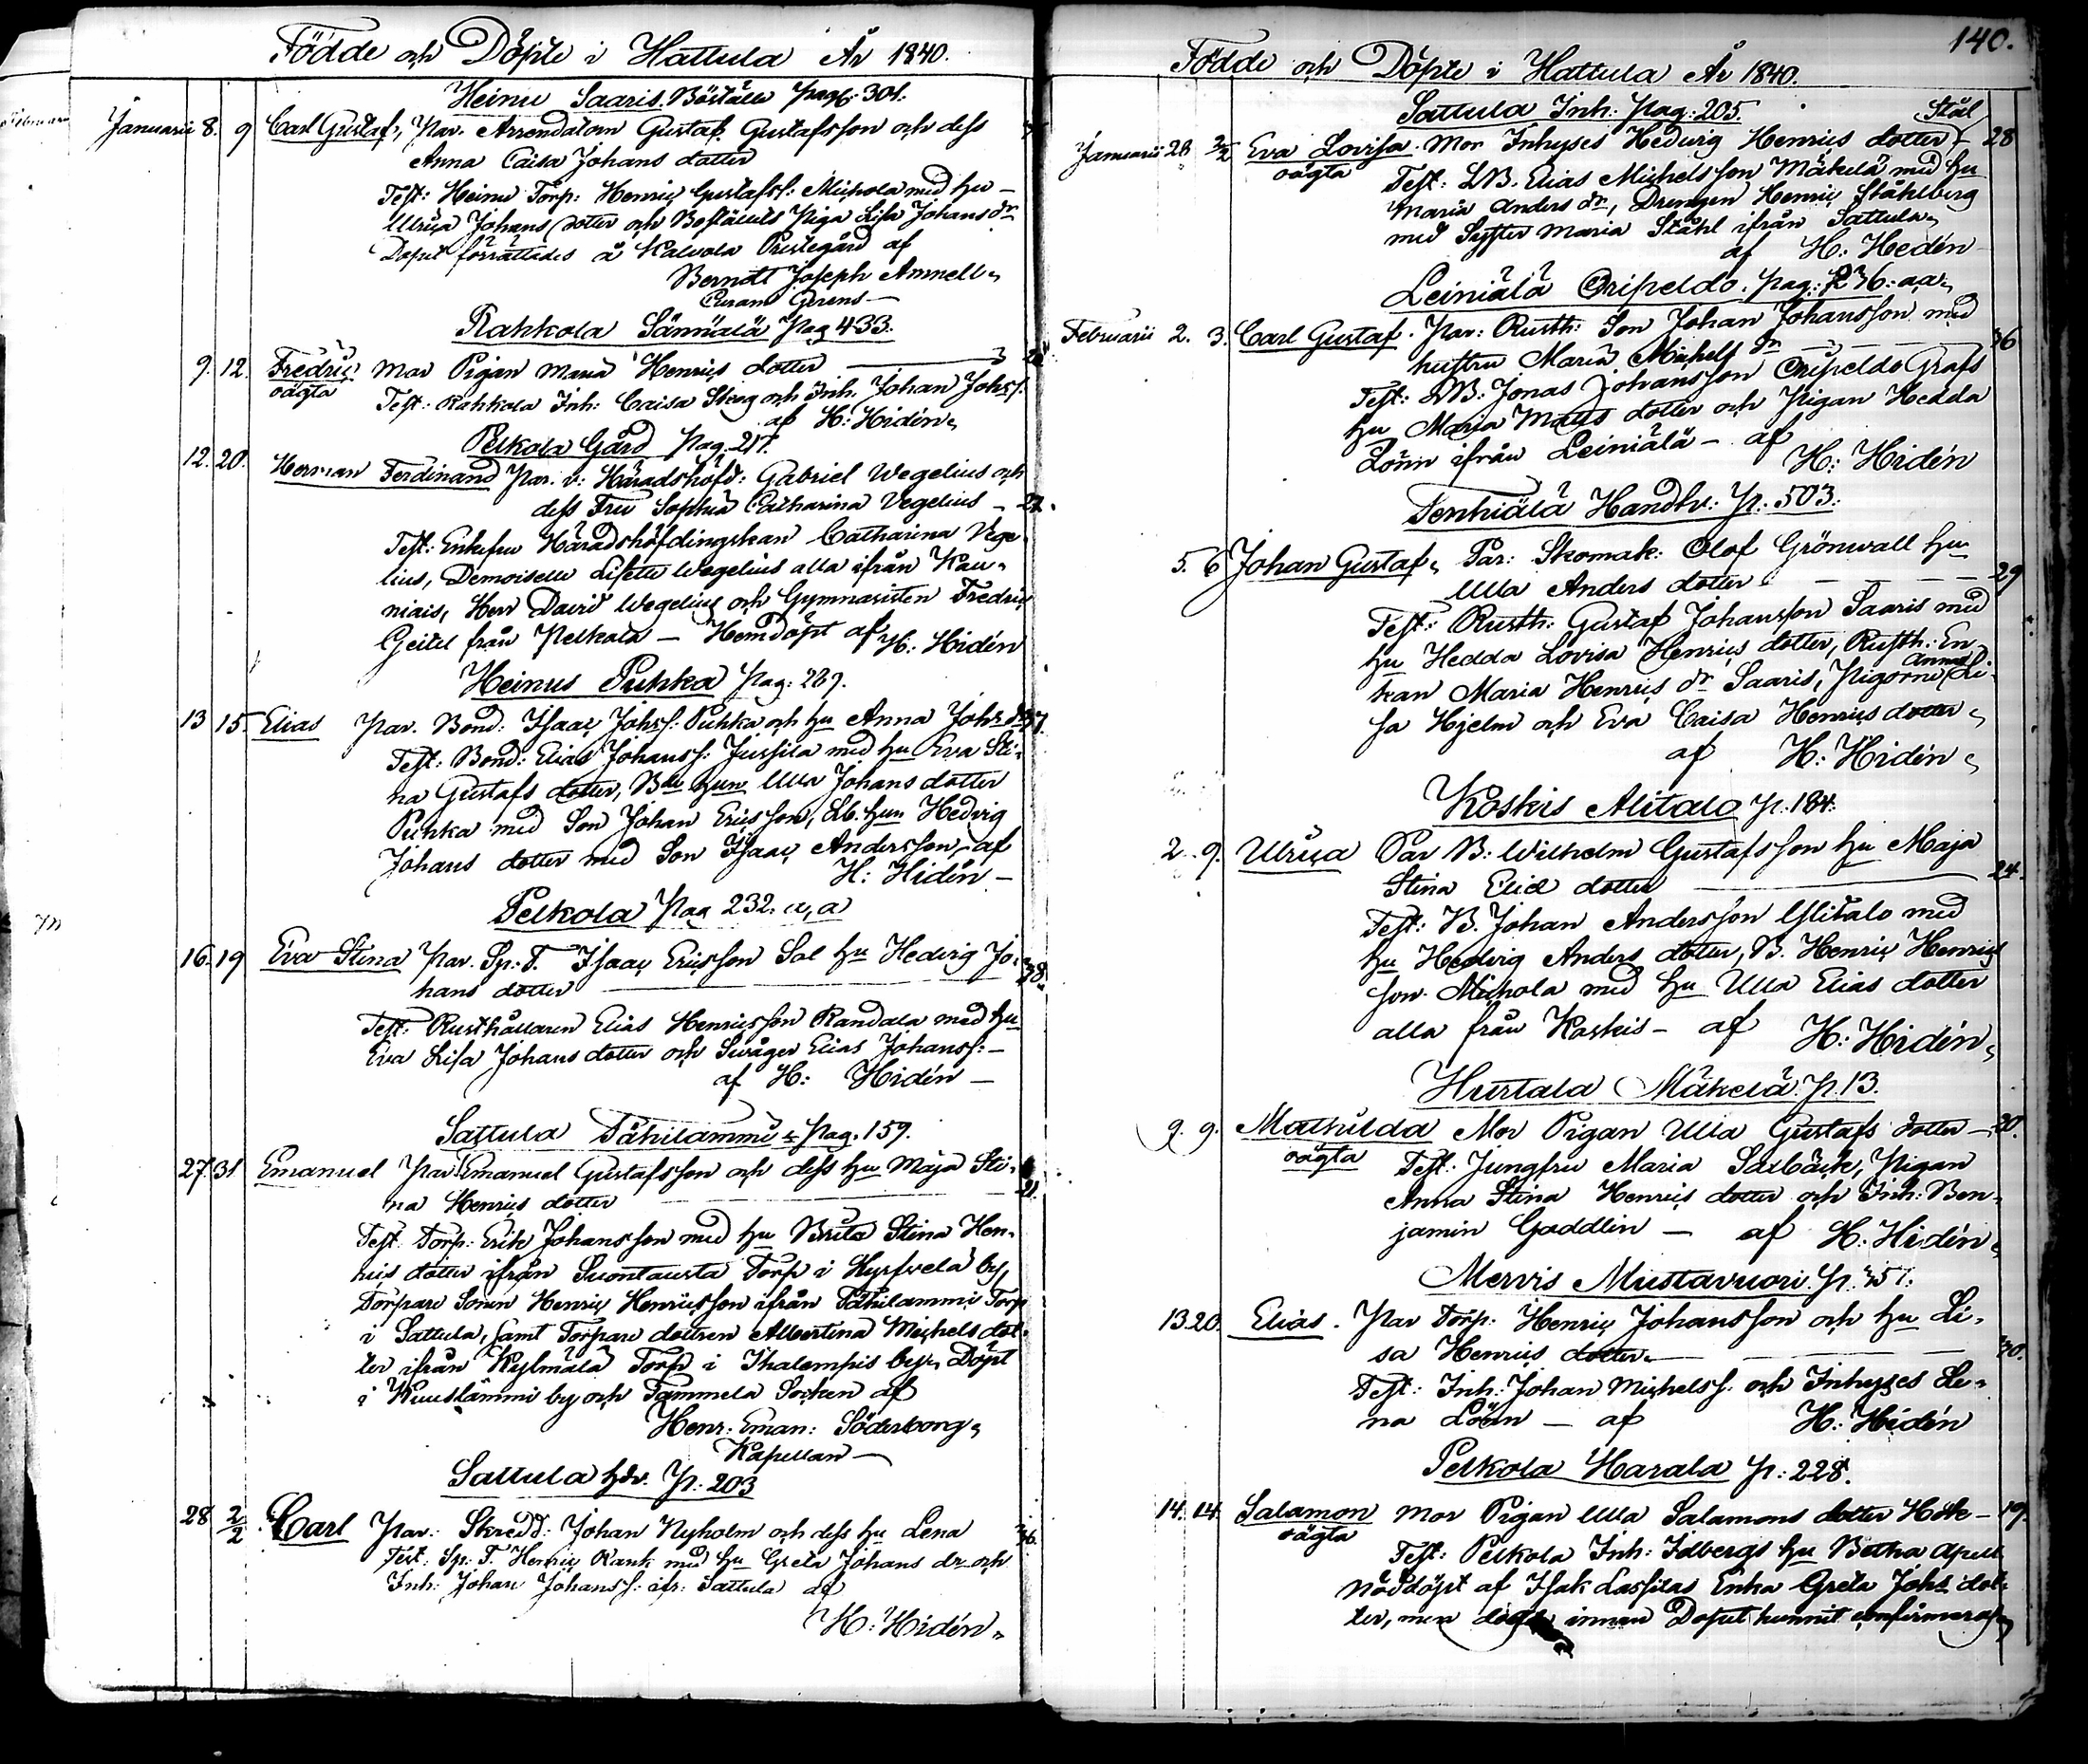 Födde och Döpte i Hattula År 1840.
Heinu Saaris Boställe pag: 301.
Januarii 8. 9 Carl Gustaf, Par. Arrendatorn Gustaf Gustafsson och dess
Anna Caisa Johans dotter
Test: Heinu Torp: Henric Gustafss: Michola med hu
Ulrica Johans dotter och Boställets Piga Lisa Johans dr
Doput förrättades å Kalvola Prestegård af
Berndt Joseph Amnell
Curam Gerens
Rahkola Sännälä Pag 433.
9. 12. Fredric Mor Pigan Maria Henrics dotter
oägta Test: Rahkola Inh: Caisa Skog och Inh. Johan Johss:
af H: Hidén
Pelkola Gård Pag. 217.
12. 20. Herman Ferdinand Par. v: Häradshöfd: Gabriel Wegelius och
dess Fru Sophia Catharina Vegelius 27.
Test: Enkefru Häradshöfdingskan Catharina Vege
lius, Demoiselle Lisette Wegelius alla ifrån Kau
niais, Herr David Wegelius och Gymnasisten Fredric
Geitel från Pelkola — Hemdöpt af H: Hidén
Heinus Puhka Pag: 289.
13 15. Elias Par. Bond: Isaac Johss: Puhka och hu Anna Johs dr 37.
Test: Bond: Elias Johanss: Jussila med hu Eva Sti-
na Gustafs dotter, Bde hun Ulla Johans dotter
Puhka med Son Johan Ericsson, Lb. hun Hedvig
Johans dotter med Son Isaac Andersson, af
H: Hidén —
Pelkola Pag 232. a, a
16. 19 Eva Stina Par. Sp: T. Isaac Ericsson Sal hu Hedvig Jo- 38.
hans dotter
Test: Rusthållaren Elias Henricsson Randala med hu
Eva Lisa Johans dotter och Swåger Elias Johanss: —
af H: Hidén —
Sattula Tähilammi Pag. 159.
27. 31 Emanuel Par Emanuel Gustafsson och dess hu Maja Sti-
na Henrics dotter 21.
Test: Torp: Erik Johansson med hu Brita Stina Hen-
rics dotter ifrån Suontausta Torp i Hyrfvelä by,
Torpare Sonen Henric Henricsson ifrån Tähilammi Torp
i Sattula, samt Torpare dottren Albertina Michels dot-
ter ifrån Kylmälä Torp i Ihalempis by, Döpt
i Kuuslammi by och Tammela Socken af
Henr: Eman: Söderborg,
Kapellan —
Sattula hdr. p: 203
28 2/2 Carl Par: Skredd: Johan Nyholm och dess hu Lena 36.
Test: Sp: T. Henric Rank med hu Greta Johans dr och
Inh: Johan Johanss: ifr: Sattula af
H: Hidén
140.
Födde och Döpte i Hattula År 1840.
Sattula Inh: pag: 205.
Stål
Januarii 28 2/2 Eva Lovisa. Mor Inhyses Hedvig Henrics dotter 28
oägta Test: LB. Elias Michelsson Mäkelä med hu
Maria Anders dr, Drengen Henric Ståhlberg
med Syster Maria Ståhl ifrån Sattula
af H: Hedén
Leiniälä Cripeldo. pag: 236: aa
Februarii 2. 3. Carl Gustaf. Par: Rusth: Son Johan Johansson med 36
hustru Maria Michels dr
Test: LB: Jonas Johansson Cripeldo Grafs
hu Maria Matts dotter och Pigan Hedda
Lönn ifrån Leiniälä — af
H: Hidén
Tenhiälä Handtv: p: 503.
5. 6 Johan Gustaf, Par: Skomak: Olof Grönwall hu
Ulla Anders dotter 29
Test: Rusth: Gustaf Johansson Saaris med
hu Hedda Lovisa Henrics dotter, Rusth: En-
kan Maria Henrics dr Saaris, Pigorne Anna Li-
sa Hjelm och Eva Caisa Henrics dotter
af H: Hidén
Koskis Alitalo p. 184.
2. 9. Ulrica Par B: Wilhelm Gustafsson hu Maja
Stina Elie dotter 24.
Test: B. Johan Andersson Ylitalo med
hu Hedvig Anders dotter, B. Henric Henrics
son Michola med hu Ulla Elias dotter
alla från Koskis — af H: Hidén
Hurtala Mäkelä p. 13.
9. 9. Mathilda Mor Pigan Ulla Gustafs dotter — 30.
oägta Test: Jungfru Maria Saxbäck, Pigan
Anna Stina Henrics dotter och Inh: Ben-
jamin Gaddlin — af H. Hidén
Mervis Mustavuori p. 351.
13 20. Elias. Par Torp: Henric Johansson och hu Li-
sa Henrics dotter 30.
Test: Inh: Johan Michelss: och Inhyses Le-
na Löön — af H: Hidén
Pelkola Harala p: 228.
14. 14. Salamon Mor Pigan Ulla Salamons dotter Höök — 19.
oägta Test: Pelkola Inh: Idbergs hu Betha
Nöddöpt af Isak Lassilas Enka Greta Johs dot-
ter, men dog innan Doput hunnit confirmeras